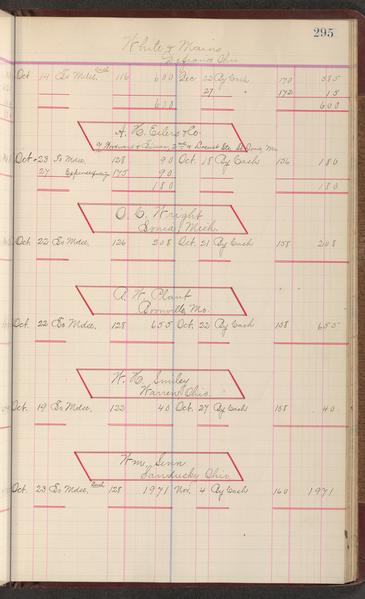 295
White & Mains
Defiance Ohio
Oct 14 To Mdse. Cash 116 600 Dec 22 By Cash 170 585
27 " 172 15
600 600
A. H. Eilers & Co.
Oct 23 To Mdse. 128 90 Oct 18 By Cash 156 180
27 175 90
180 180
O. C. Wright
Ionia Mich.
Oct 22 To Mdse. 126 208 Oct. 21 By Cash 158 208
A. W. Plant
Boonville Mo.
Oct. 22 To Mdse. 128 655 Oct. 22 By Cash 158 655
W. H. Smiley
Warren Ohio.
Oct. 19 To Mdse. 122 40 Oct. 27 By Cash 158 40
Wm. Senn
Sandusky Ohio
Oct. 23 To Mdse. Cash 128 1971 Nov. 4 By Cash 160 1971